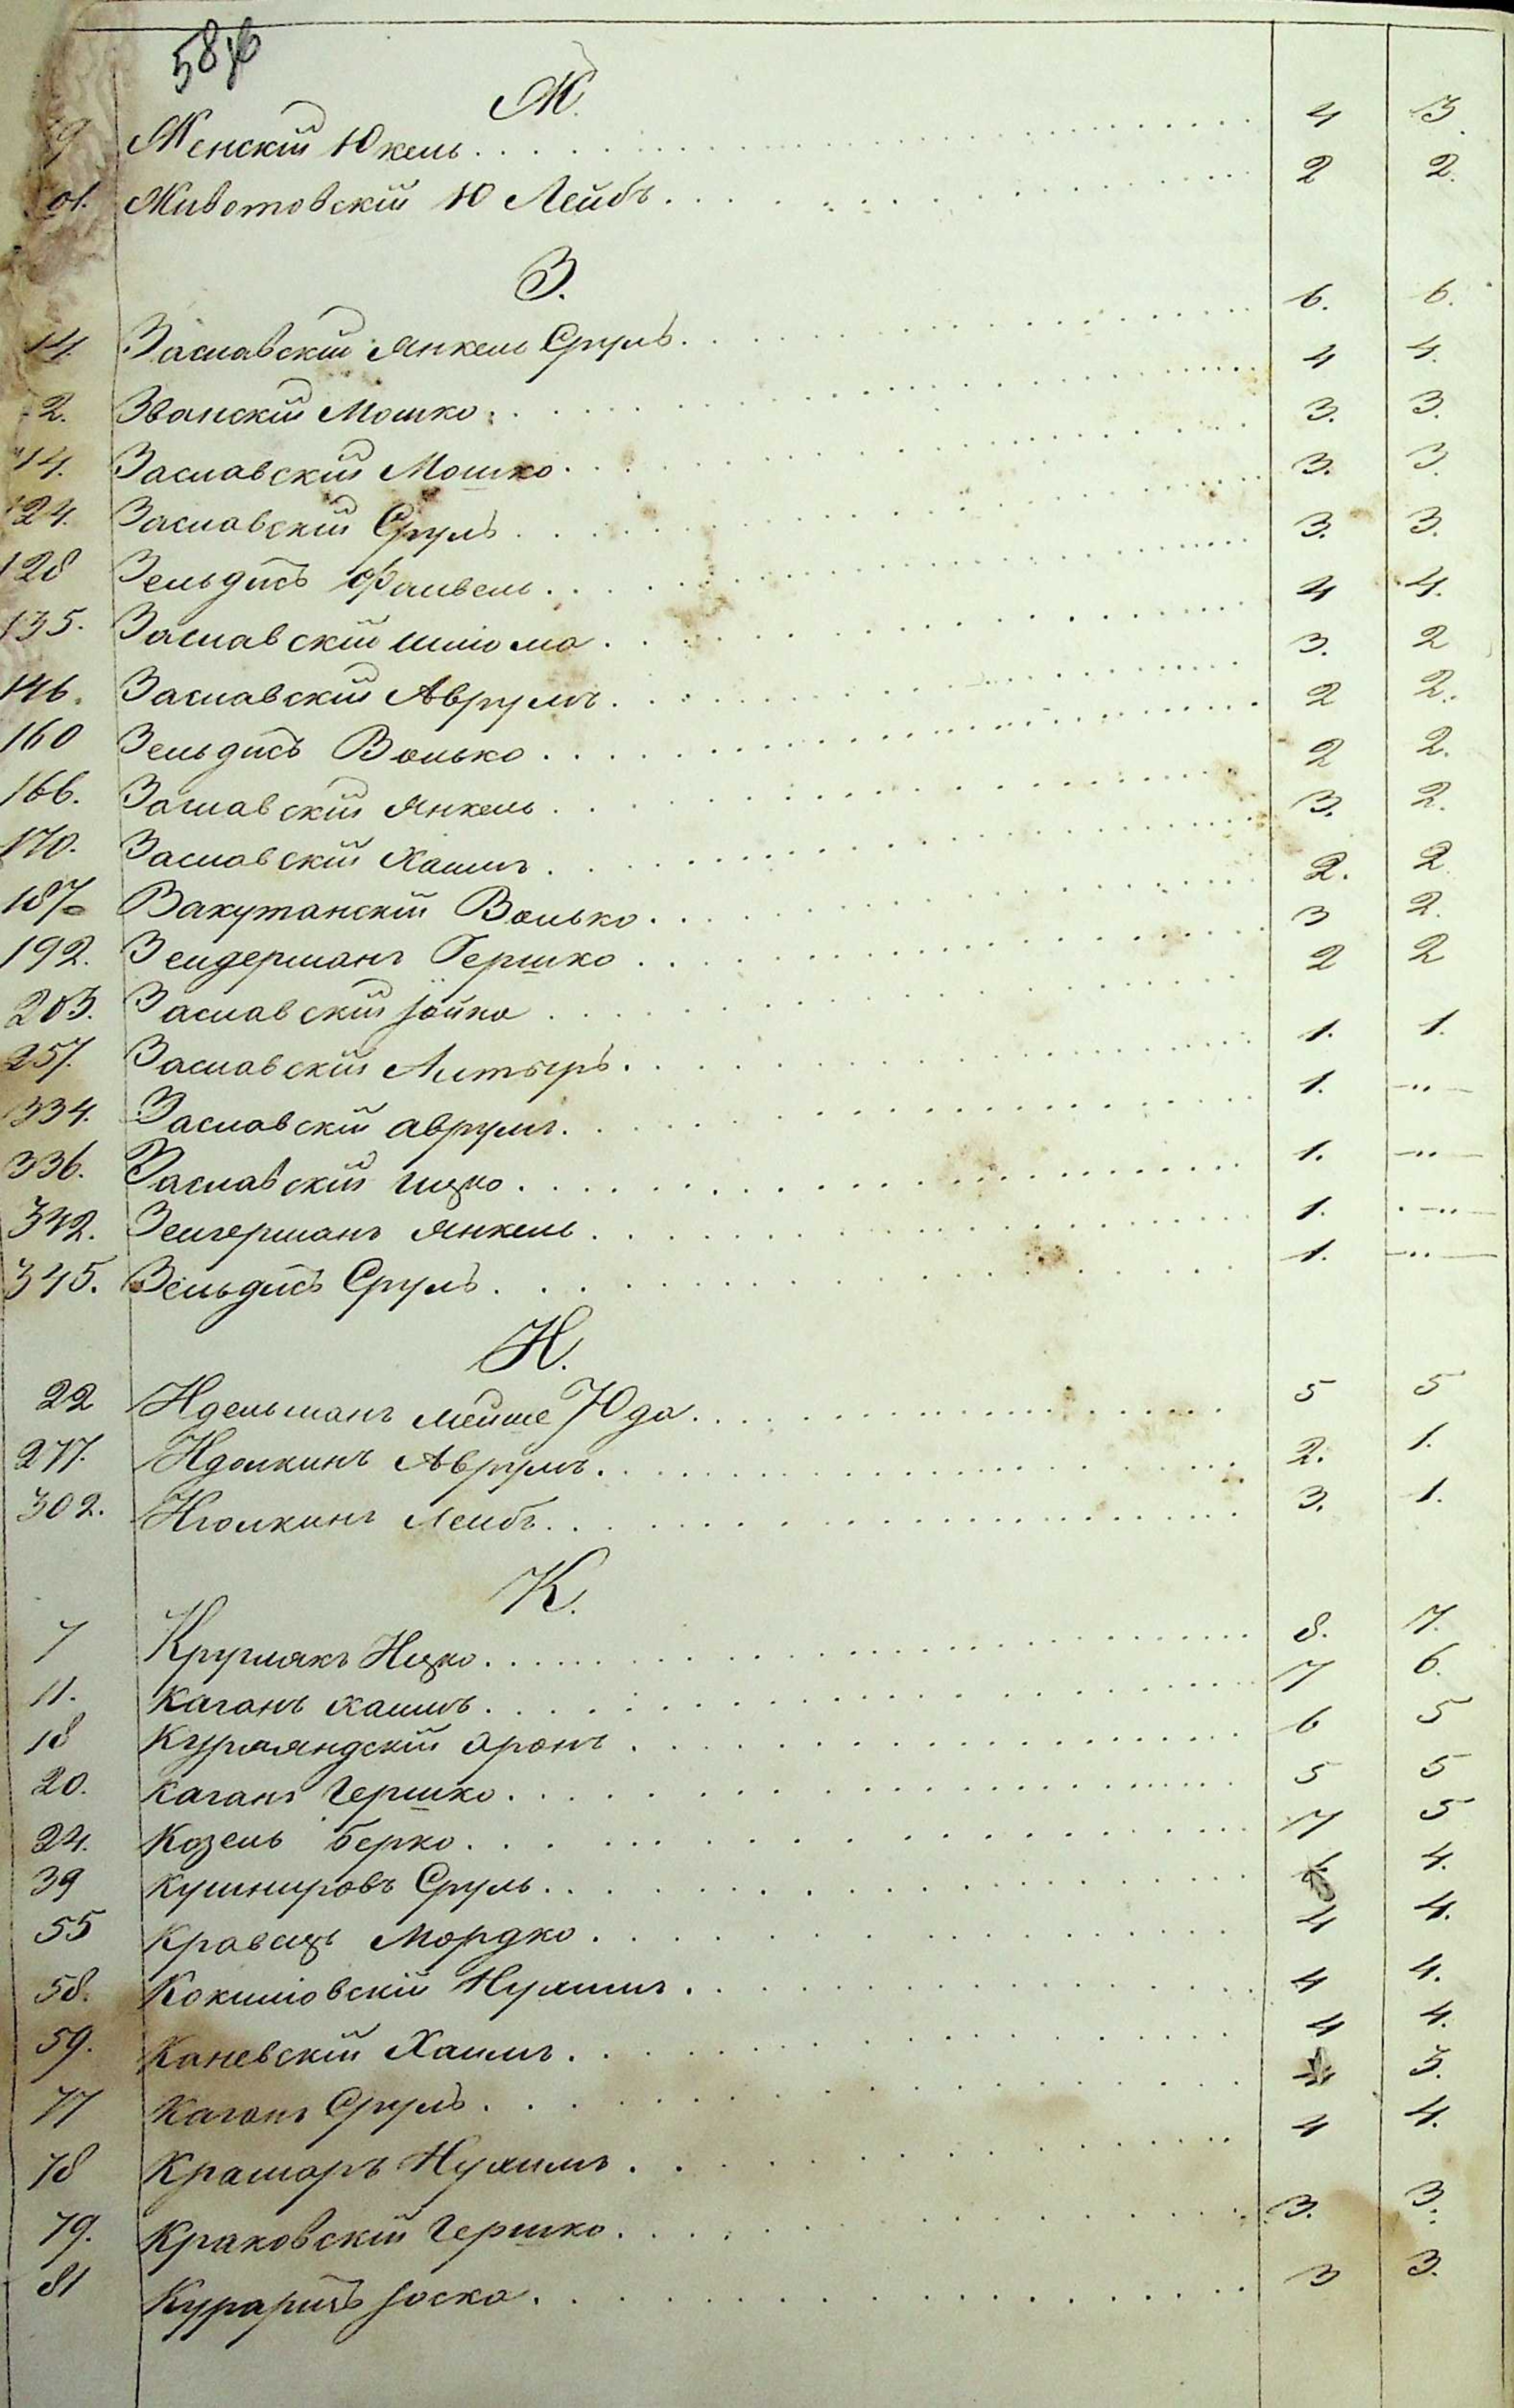 58
Ж.
9 Женскій Юкель 4 3.
Животовскій Ю Лейбъ 2 2.
З.
14. Заславскій Янкель Сруль 6. 6.
2. Званскій Мошко 4 4.
14. Заславскій Мошко 3. 3.
124. Заславскій Сруль 3. 3.
128 Зельдисъ Файвель 3. 3.
135. Заславскій Шліома 4 4.
146. Заславскій Аврумъ 3. 2
160 Зельдисъ Волько 2 2.
166. Заславскій Янкель 2 2.
170. Заславскій Хаимъ 3. 2.
187 Закутанскій Волько 2. 2.
192. Зейдерманъ Гершко 3 2.
203. Заславскій Іойна 2 2
257. Заславскій Альтеръ 1. 1.
334. Заславскій Аврумъ 1. -„-
336. Заславскій Ицко 1. -„-
342. Зейгерманъ Янкель 1. -„-
345. Зельдисъ Сруль 1. -„-
И.
22 Идельманъ Мейше Юда 5 5
277. Идолкинъ Аврумъ 2. 1.
302. Иголкинъ Лейбъ 3. 1.
К.
7 Круглякъ Ицко 8. 7.
11. Каганъ Хаимъ 7 6.
18 Курляндскій Аронъ 6 5
20. Каганъ Гершко 5 5
24. Козель Берко 7 5
39 Кушнировъ Сруль 4.
55 Кравецъ Мордко 4 4.
58. Кокшіовскій Нухимъ 4 4.
59. Каневскій Хаимъ 4 4.
77 Каганъ Сруль 3.
78 Крамаръ Нухимъ 4 4.
79. Краковскій Гершко 3. 3.
81 Іоско 3 3.